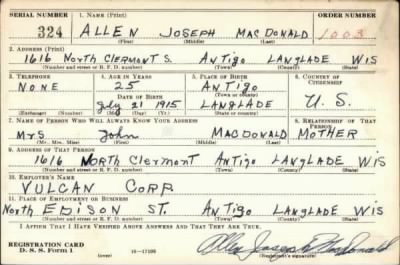 SERIAL NUMBER 1. NAME (Print) ORDER NUMBER
324 ALLEN JOSEPH MACDONALD 1003
(First) (Middle) (Last)
2. ADDRESS (Print)
1616 North Clermont S. Antigo Langlade Wis
(Number and street or R. F. D. number) (Town) (County) (State)
3. TELEPHONE 4. AGE IN YEARS 5. PLACE OF BIRTH 6. COUNTRY OF CITIZENSHIP
None 25 Antigo
DATE OF BIRTH (Town or county)
July 21 1915 Langlade U. S.
(Exchange) (Number) (Mo.) (Day) (Yr.) (State or country)
7. NAME OF PERSON WHO WILL ALWAYS KNOW YOUR ADDRESS 8. RELATIONSHIP OF THAT PERSON
Mrs John MacDonald Mother
(Mr., Mrs., Miss) (First) (Middle) (Last)
9. ADDRESS OF THAT PERSON
1616 North Clermont Antigo Langlade Wis
(Number and street or R. F. D. number) (Town) (County) (State)
10. EMPLOYER'S NAME
Vulcan Corp
11. PLACE OF EMPLOYMENT OR BUSINESS
North Edison St. Antigo Langlade Wis
(Number and street or R. F. D. number) (Town) (County) (State)
I AFFIRM THAT I HAVE VERIFIED ABOVE ANSWERS AND THAT THEY ARE TRUE.
REGISTRATION CARD
D. S. S. Form 1 (over) Allen Joseph MacDonald
(Registrant's signature)